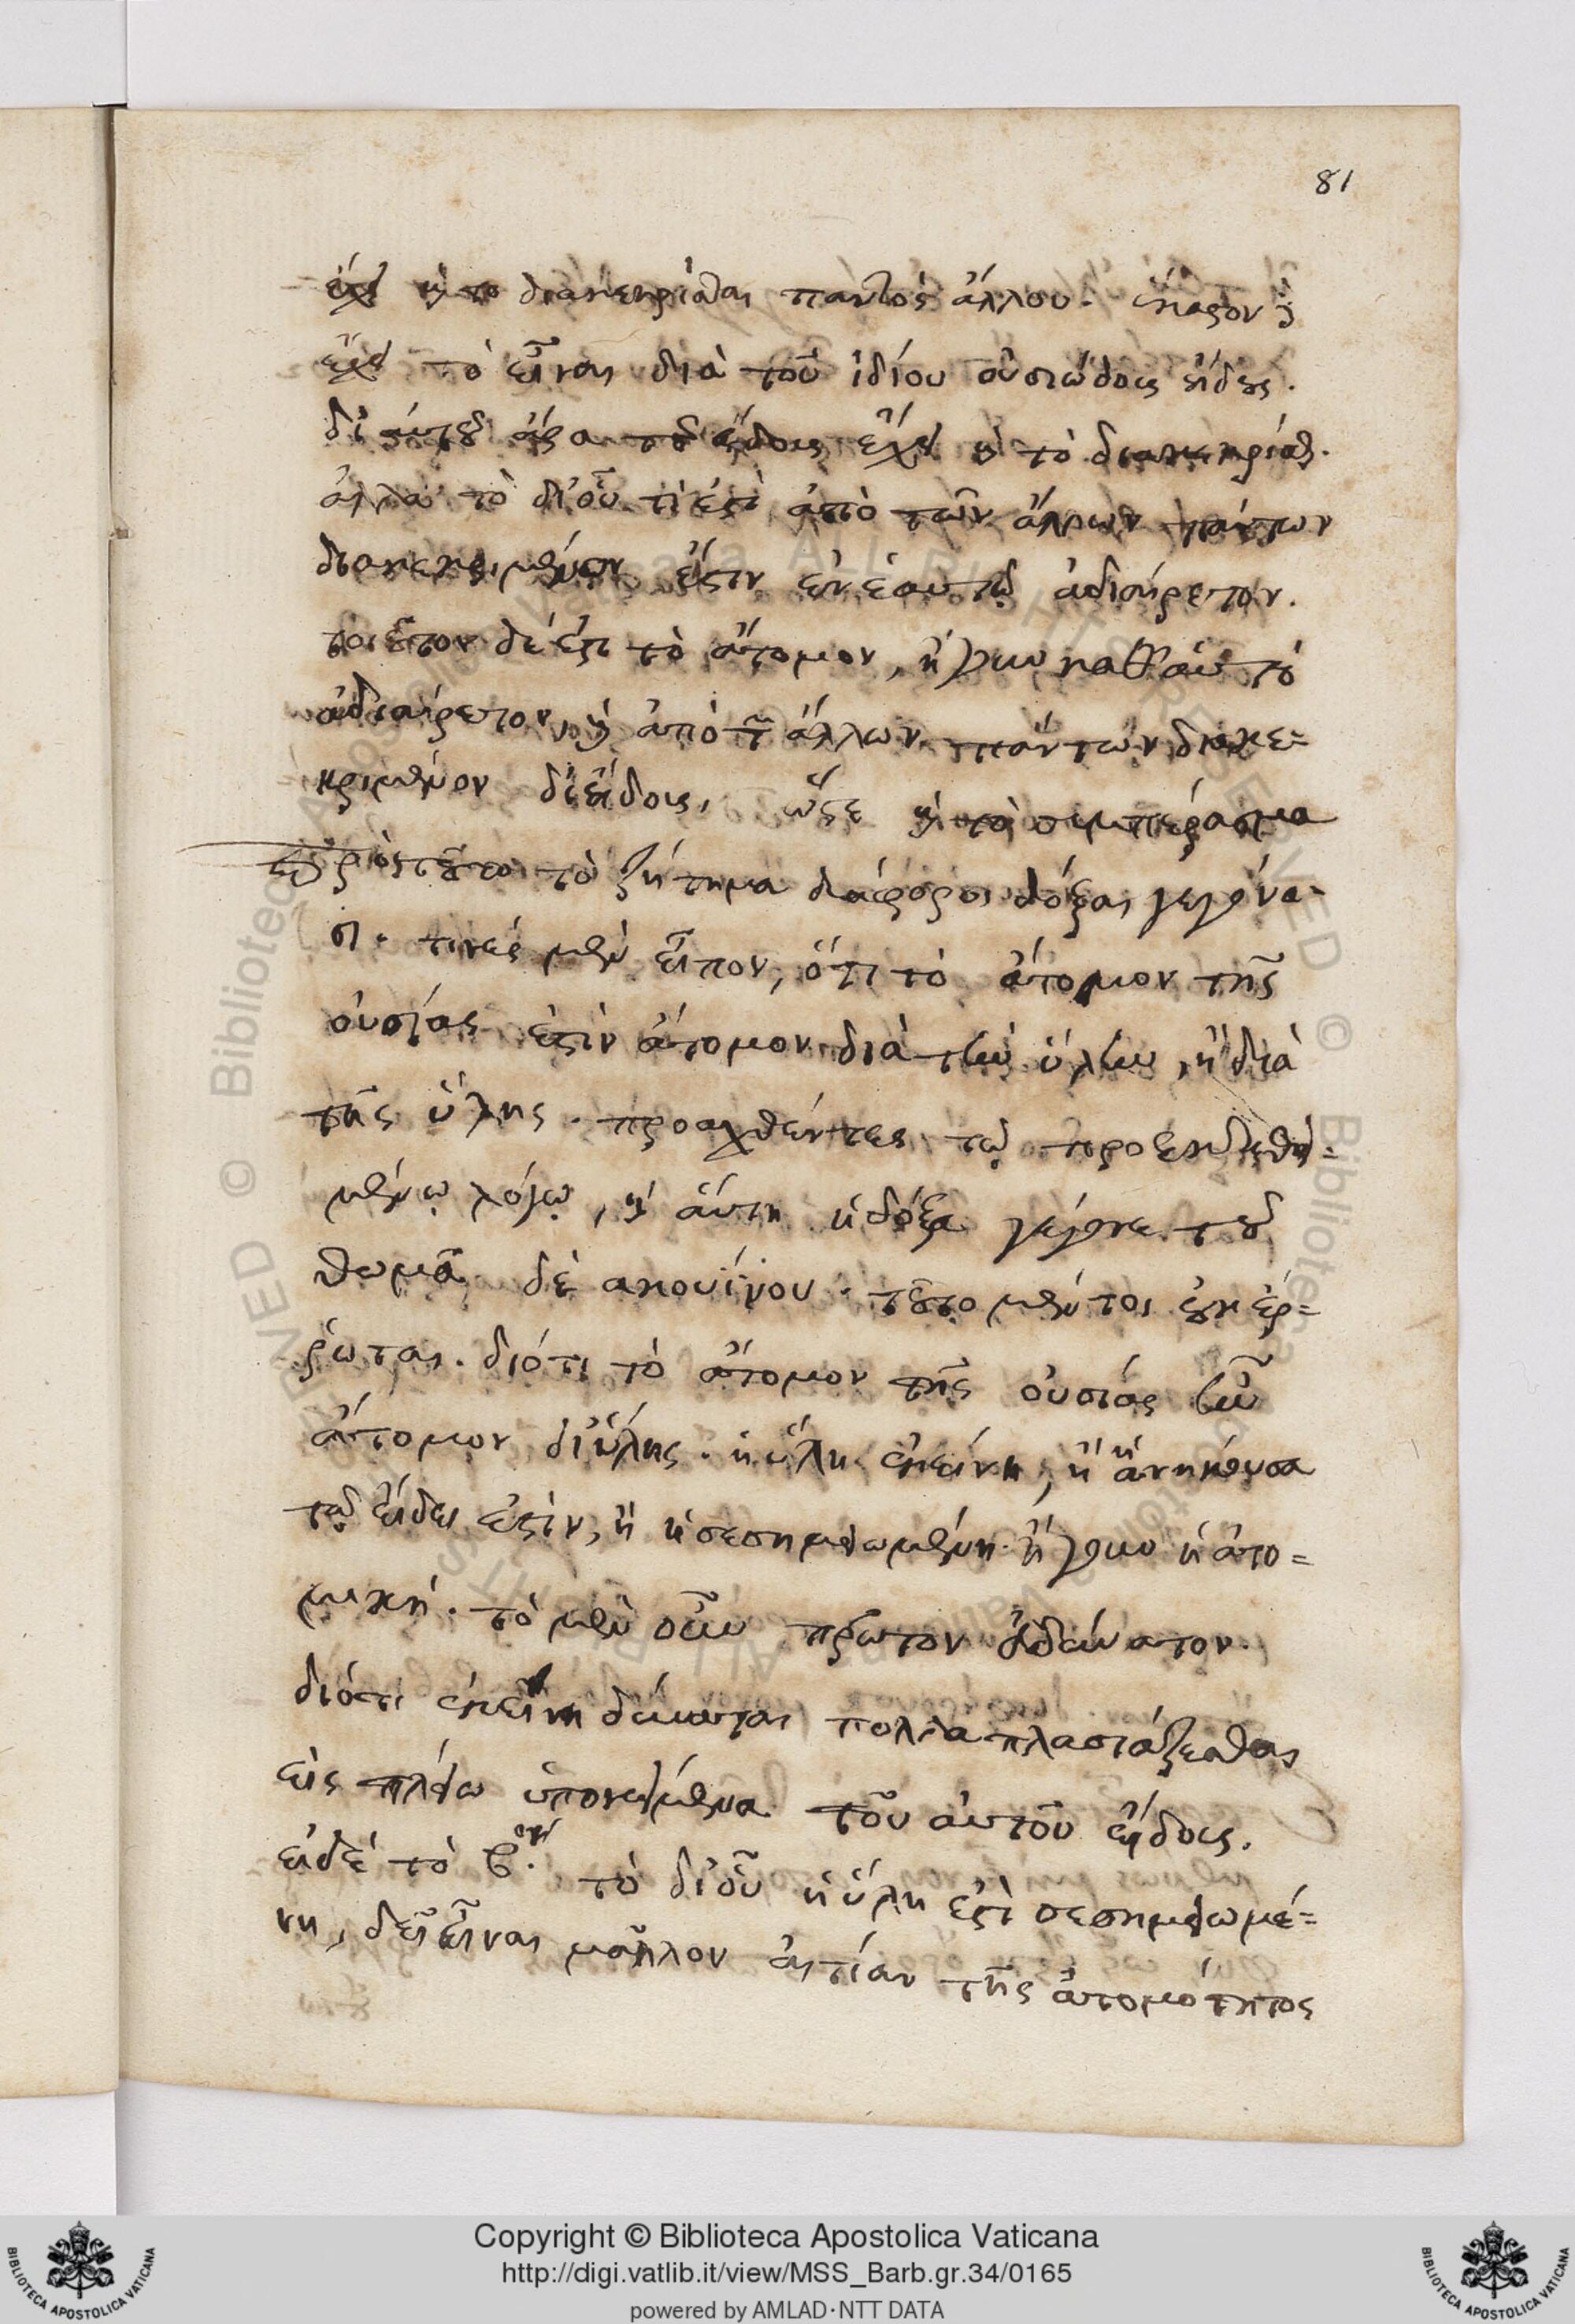 81
ἔχει καὶ τὸ διακεκρίσθαι παντὸς ἄλλου. ἕκαστον δὲ
ἔχει τὸ εἶναι διὰ τοῦ ἰδίου οὐσιώδους εἴδους.
δι' αὐτοῦ ἄρα τοῦ εἴδους ἔχει καὶ τὸ διακεκρίσθαι.
ἀλλὰ τὸ δι' οὗ τὶ ἐστὶ ἀπὸ τῶν ἄλλων πάντων
διακεκριμένον ἔστιν ἐν ἑαυτῷ ἀδιαίρετον.
τοιοῦτον δέ ἐστι τὸ ἄτομον, ἤγουν καθ' αὑτὸ
ἀδιαίρετον, καὶ ἀπὸ τῶν ἄλλων πάντων διακε=
κριμένον δι' εἴδους, ὥστε καὶ τὸ συμπέρασμα
πρὸς τοῦτο τὸ ζήτημα διάφοροι δόξαι γεγόνα-
σι. τινὲς μὲν εἶπον, ὅτι τὸ ἄτομον τῆς
οὐσίας ἐστὶν ἄτομον διὰ τὴν ὕλην, ἢ διὰ
τῆς ὕλης. προαχθέντες τῷ προεκτεθει=
μένῳ λόγῳ, καὶ αὕτη ἡ δόξα γέγονε τοῦ
θωμᾶ δὲ ἀκουίνου. τοῦτο μέντοι οὐκ ἔρ=
ῥωται. διότι τὸ ἄτομον τῆς οὐσίας ἦν
ἄτομον δι' ὕλης. ἡ ὕλη ἐκείνη, ἢ ἡ ἀνήκουσα
τῷ εἴδει ἐστὶν, ἢ ἡ σεσημειωμένη ἤγουν ἡ ἀτο=
μική. τὸ μὲν οὖν πρῶτον ἀδύνατον.
διότι ἐκείνη δύναται πολλαπλασιάζεσθαι
εἰς πλείω ὑποκείμενα τοῦ αὐτοῦ εἴδους.
εἰ δὲ τὸ β.ον τὸ δι' οὗ ἡ ὕλη ἐστὶ σεσημειωμέ=
νη, δεῖ εἶναι μᾶλλον αἰτίαν τῆς ἀτομότητος
Copyright © Biblioteca Apostolica Vaticana
http://digi.vatlib.it/view/MSS_Barb.gr.34/0165
powered by AMLAD·NTT DATA
BIBLIOTECA APOSTOLICA VATICANA
BIBLIOTECA APOSTOLICA VATICANA